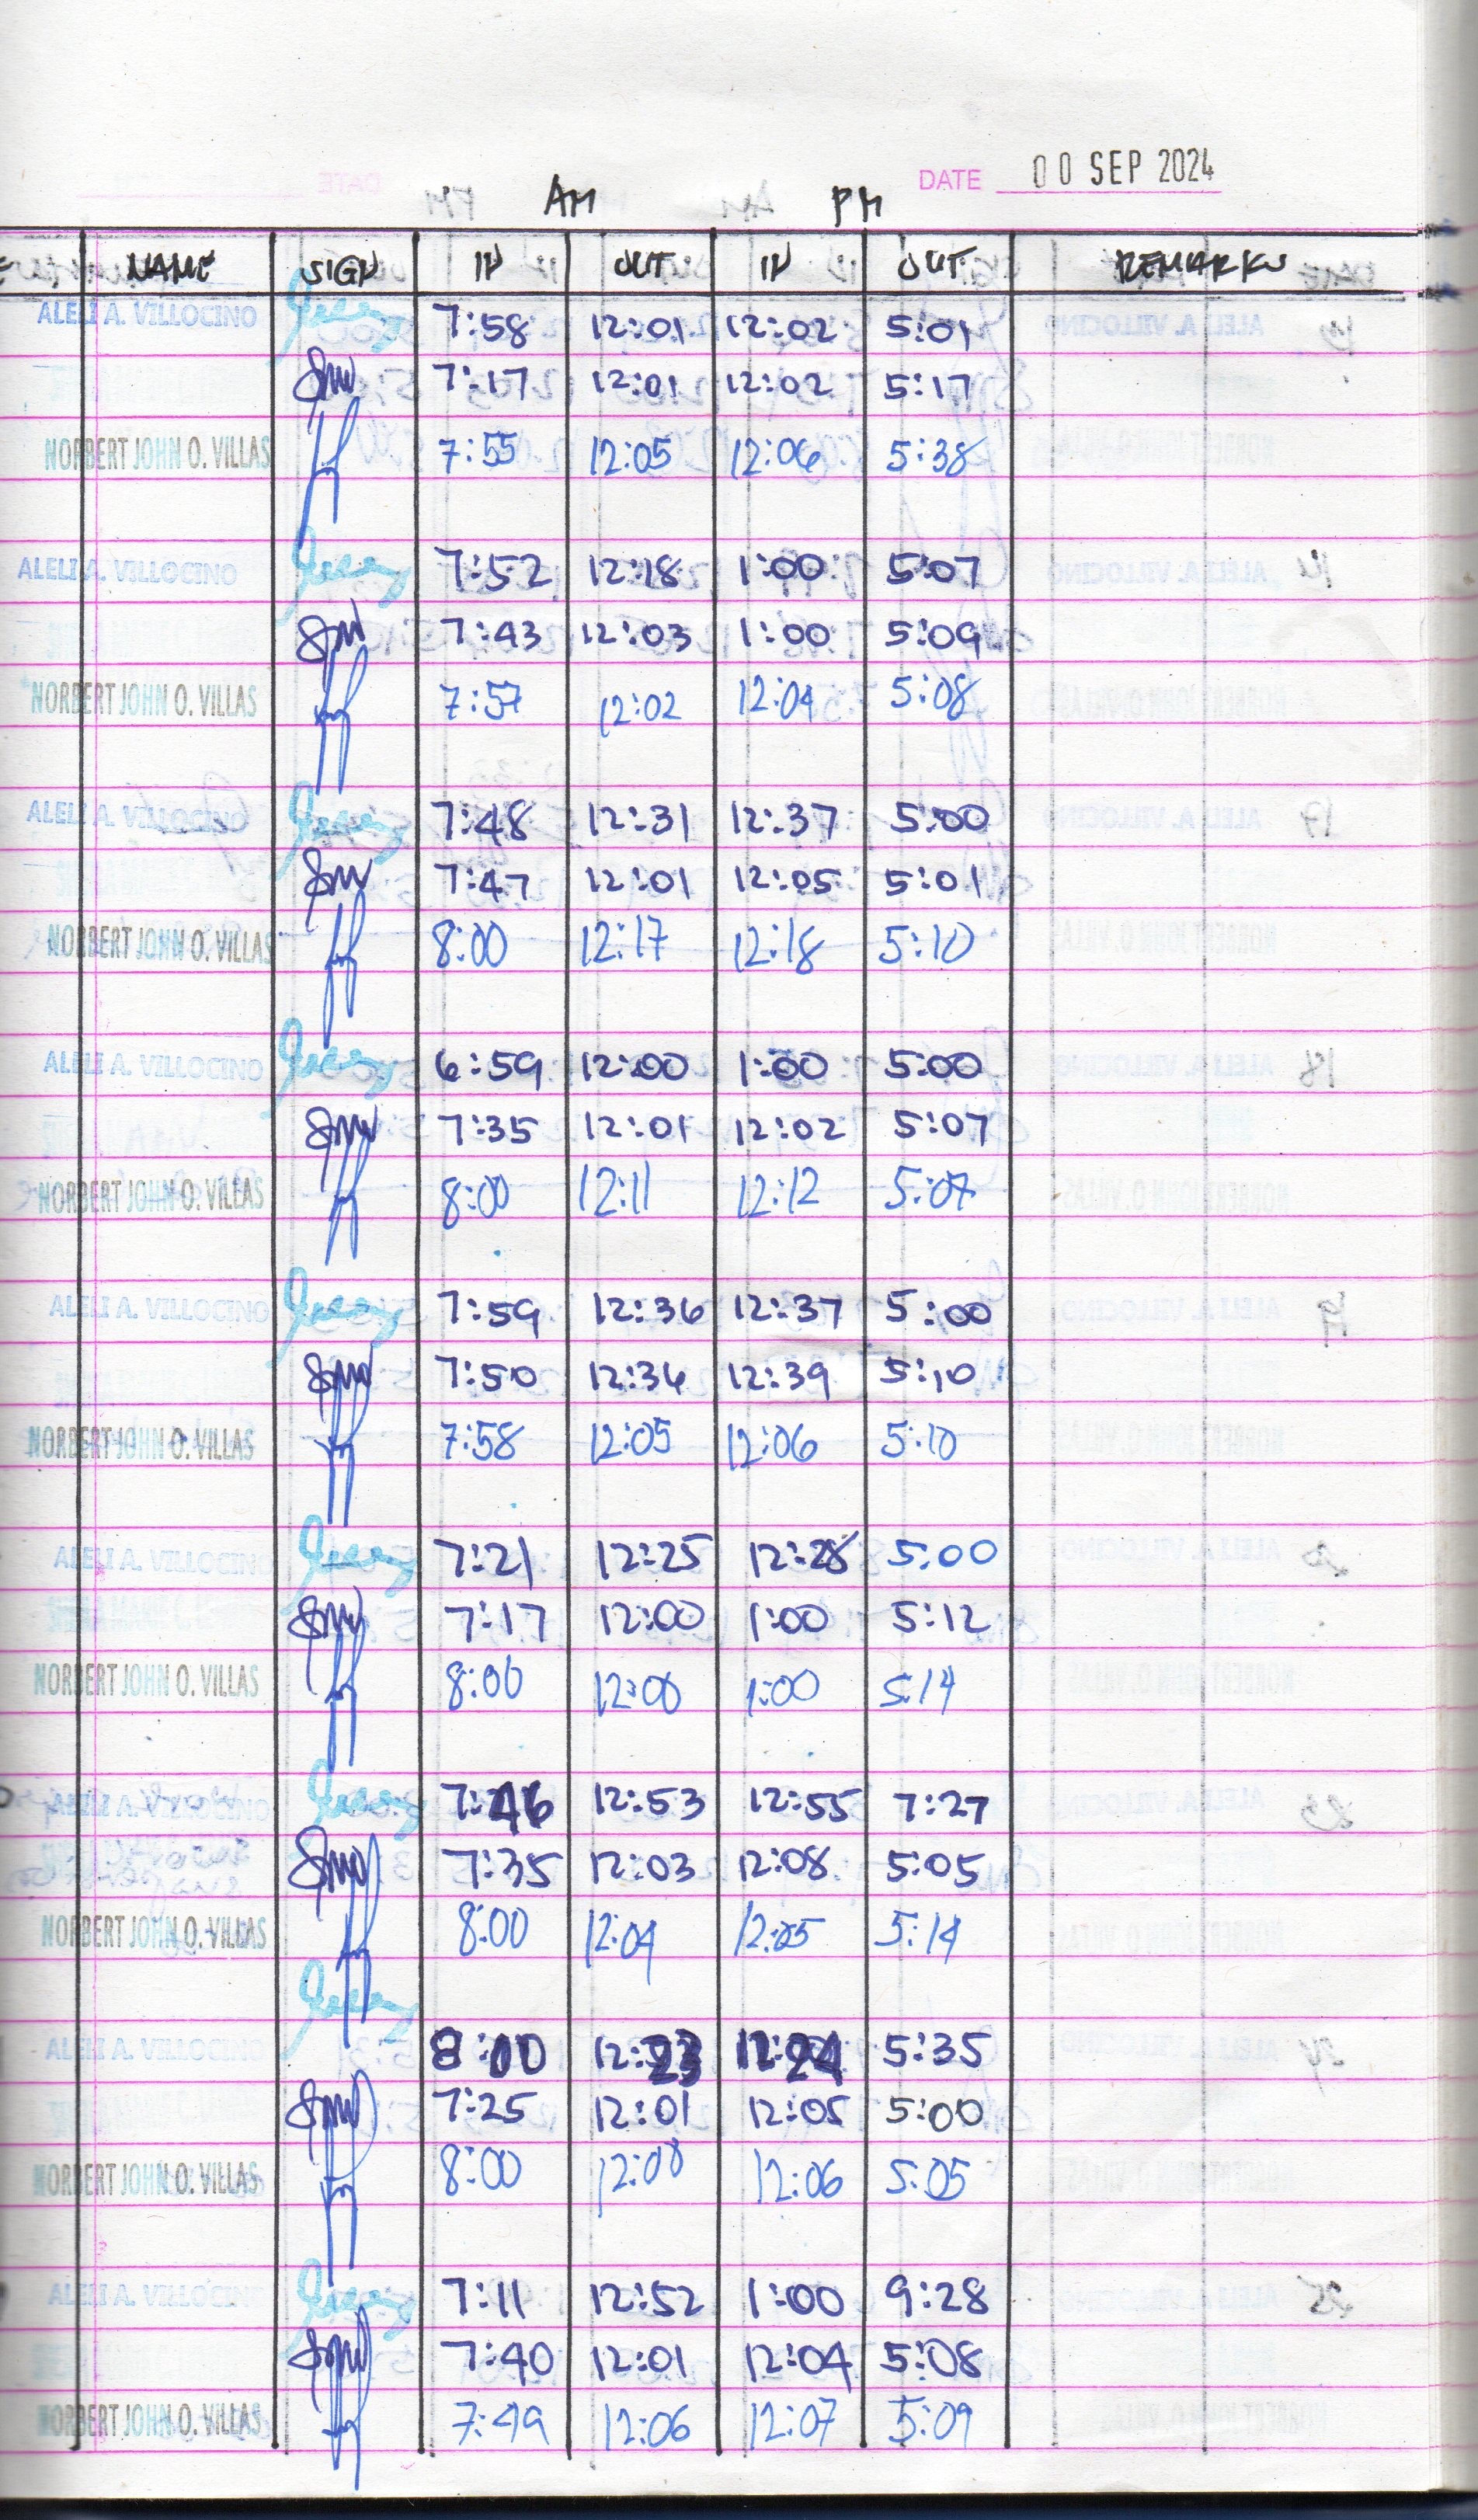 DATE 00 SEP 2024
AM PM
NAME SIGN IN OUT IN OUT REMARKS
ALELI A. VILLOCINO 7:58 12:01 12:02 5:01
7:17 12:01 12:02 5:17
NORBERT JOHN O. VILLAS 7:55 12:05 12:06 5:38
ALELI A. VILLOCINO 7:52 12:18 1:00 5:07
7:43 12:03 1:00 5:09
NORBERT JOHN O. VILLAS 7:57 12:02 12:04 5:08
ALELI A. VILLOCINO 7:48 12:31 12:37 5:00
7:47 12:01 12:05 5:01
NORBERT JOHN O. VILLAS 8:00 12:17 12:18 5:10
ALELI A. VILLOCINO 6:59 12:00 1:00 5:00
7:35 12:01 12:02 5:07
NORBERT JOHN O. VILLAS 8:00 12:11 12:12 5:07
ALELI A. VILLOCINO 7:59 12:36 12:37 5:00
7:50 12:36 12:39 5:10
NORBERT JOHN O. VILLAS 7:58 12:05 12:06 5:10
ALELI A. VILLOCINO 7:21 12:25 12:28 5:00
7:17 12:00 1:00 5:12
NORBERT JOHN O. VILLAS 8:00 12:00 1:00 5:14
ALELI A. VILLOCINO 7:46 12:53 12:55 7:27
7:35 12:03 12:08 5:05
NORBERT JOHN O. VILLAS 8:00 12:04 12:05 5:14
ALELI A. VILLOCINO 8:00 12:23 12:24 5:35
7:25 12:01 12:05 5:00
NORBERT JOHN O. VILLAS 8:00 12:08 12:06 5:05
ALELI A. VILLOCINO 7:11 12:52 1:00 9:28
7:40 12:01 12:04 5:08
NORBERT JOHN O. VILLAS 7:49 12:06 12:07 5:09